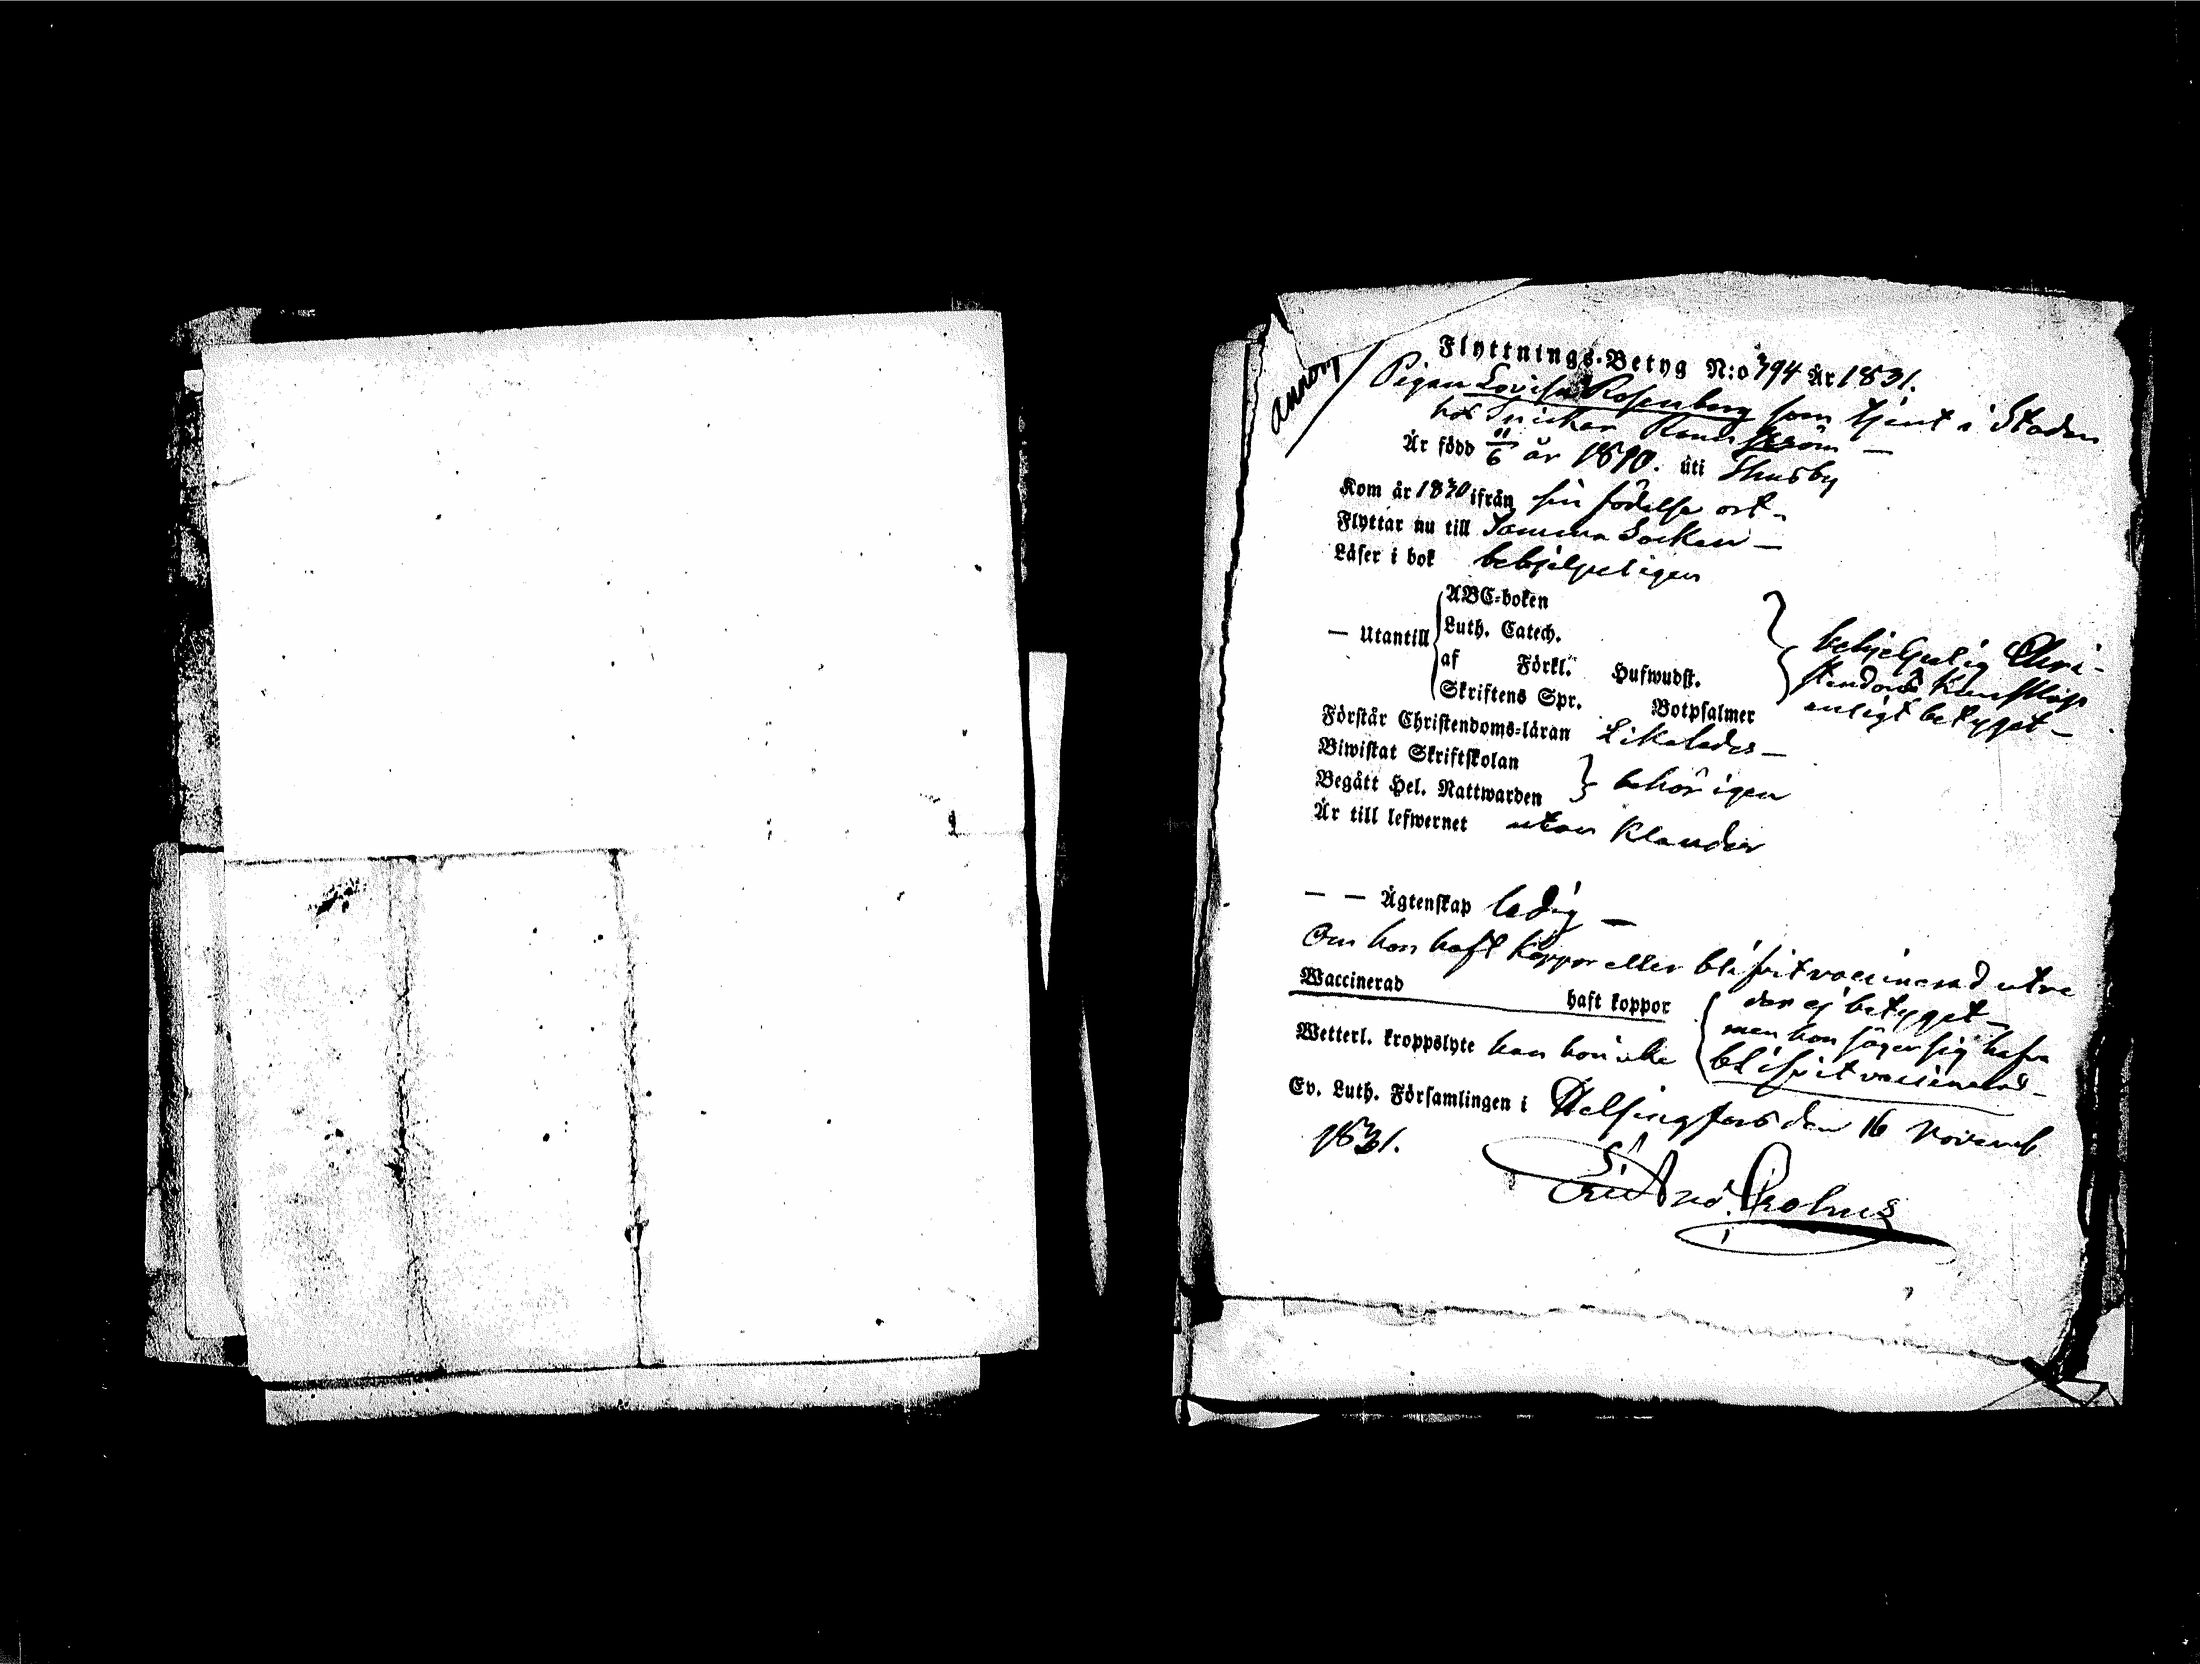 Flyttnings-Betyg N:o 794 År 1831.
Pigan Lovisa Rosenberg som tjent i Staden
hos Snickar
Är född 11/6 år 1810. uti Thusby
Kom år 1830 ifrån sin födelse ort -
Flyttar nu till Samma Socken -
Läser i bok behjelpeligen
ABC-boken
— Utantill Luth. Catech.
af Förkl. Hufwudst.
Skriftens Spr. Botpsalmer
behjelpelig Chri-
stendoms Kunskap
enligt betyget -
Förstår Christendoms-läran Likaledes -
Biwistat Skriftskolan
Begått Hel. Nattwarden } behörigen
Är till lefwernet utan klander
— — Ägtenskap ledig -
Om hon haft koppor eller blifvit vaccinerad utvi-
Waccinerad haft koppor
sar ej betyget -
men hon säger sig hafva
blifvit vaccinerad -
Wetterl. kroppslyte har hon icke
Ev. Luth. Församlingen i Helsingfors den 16 Novemb
1831.
Crohns